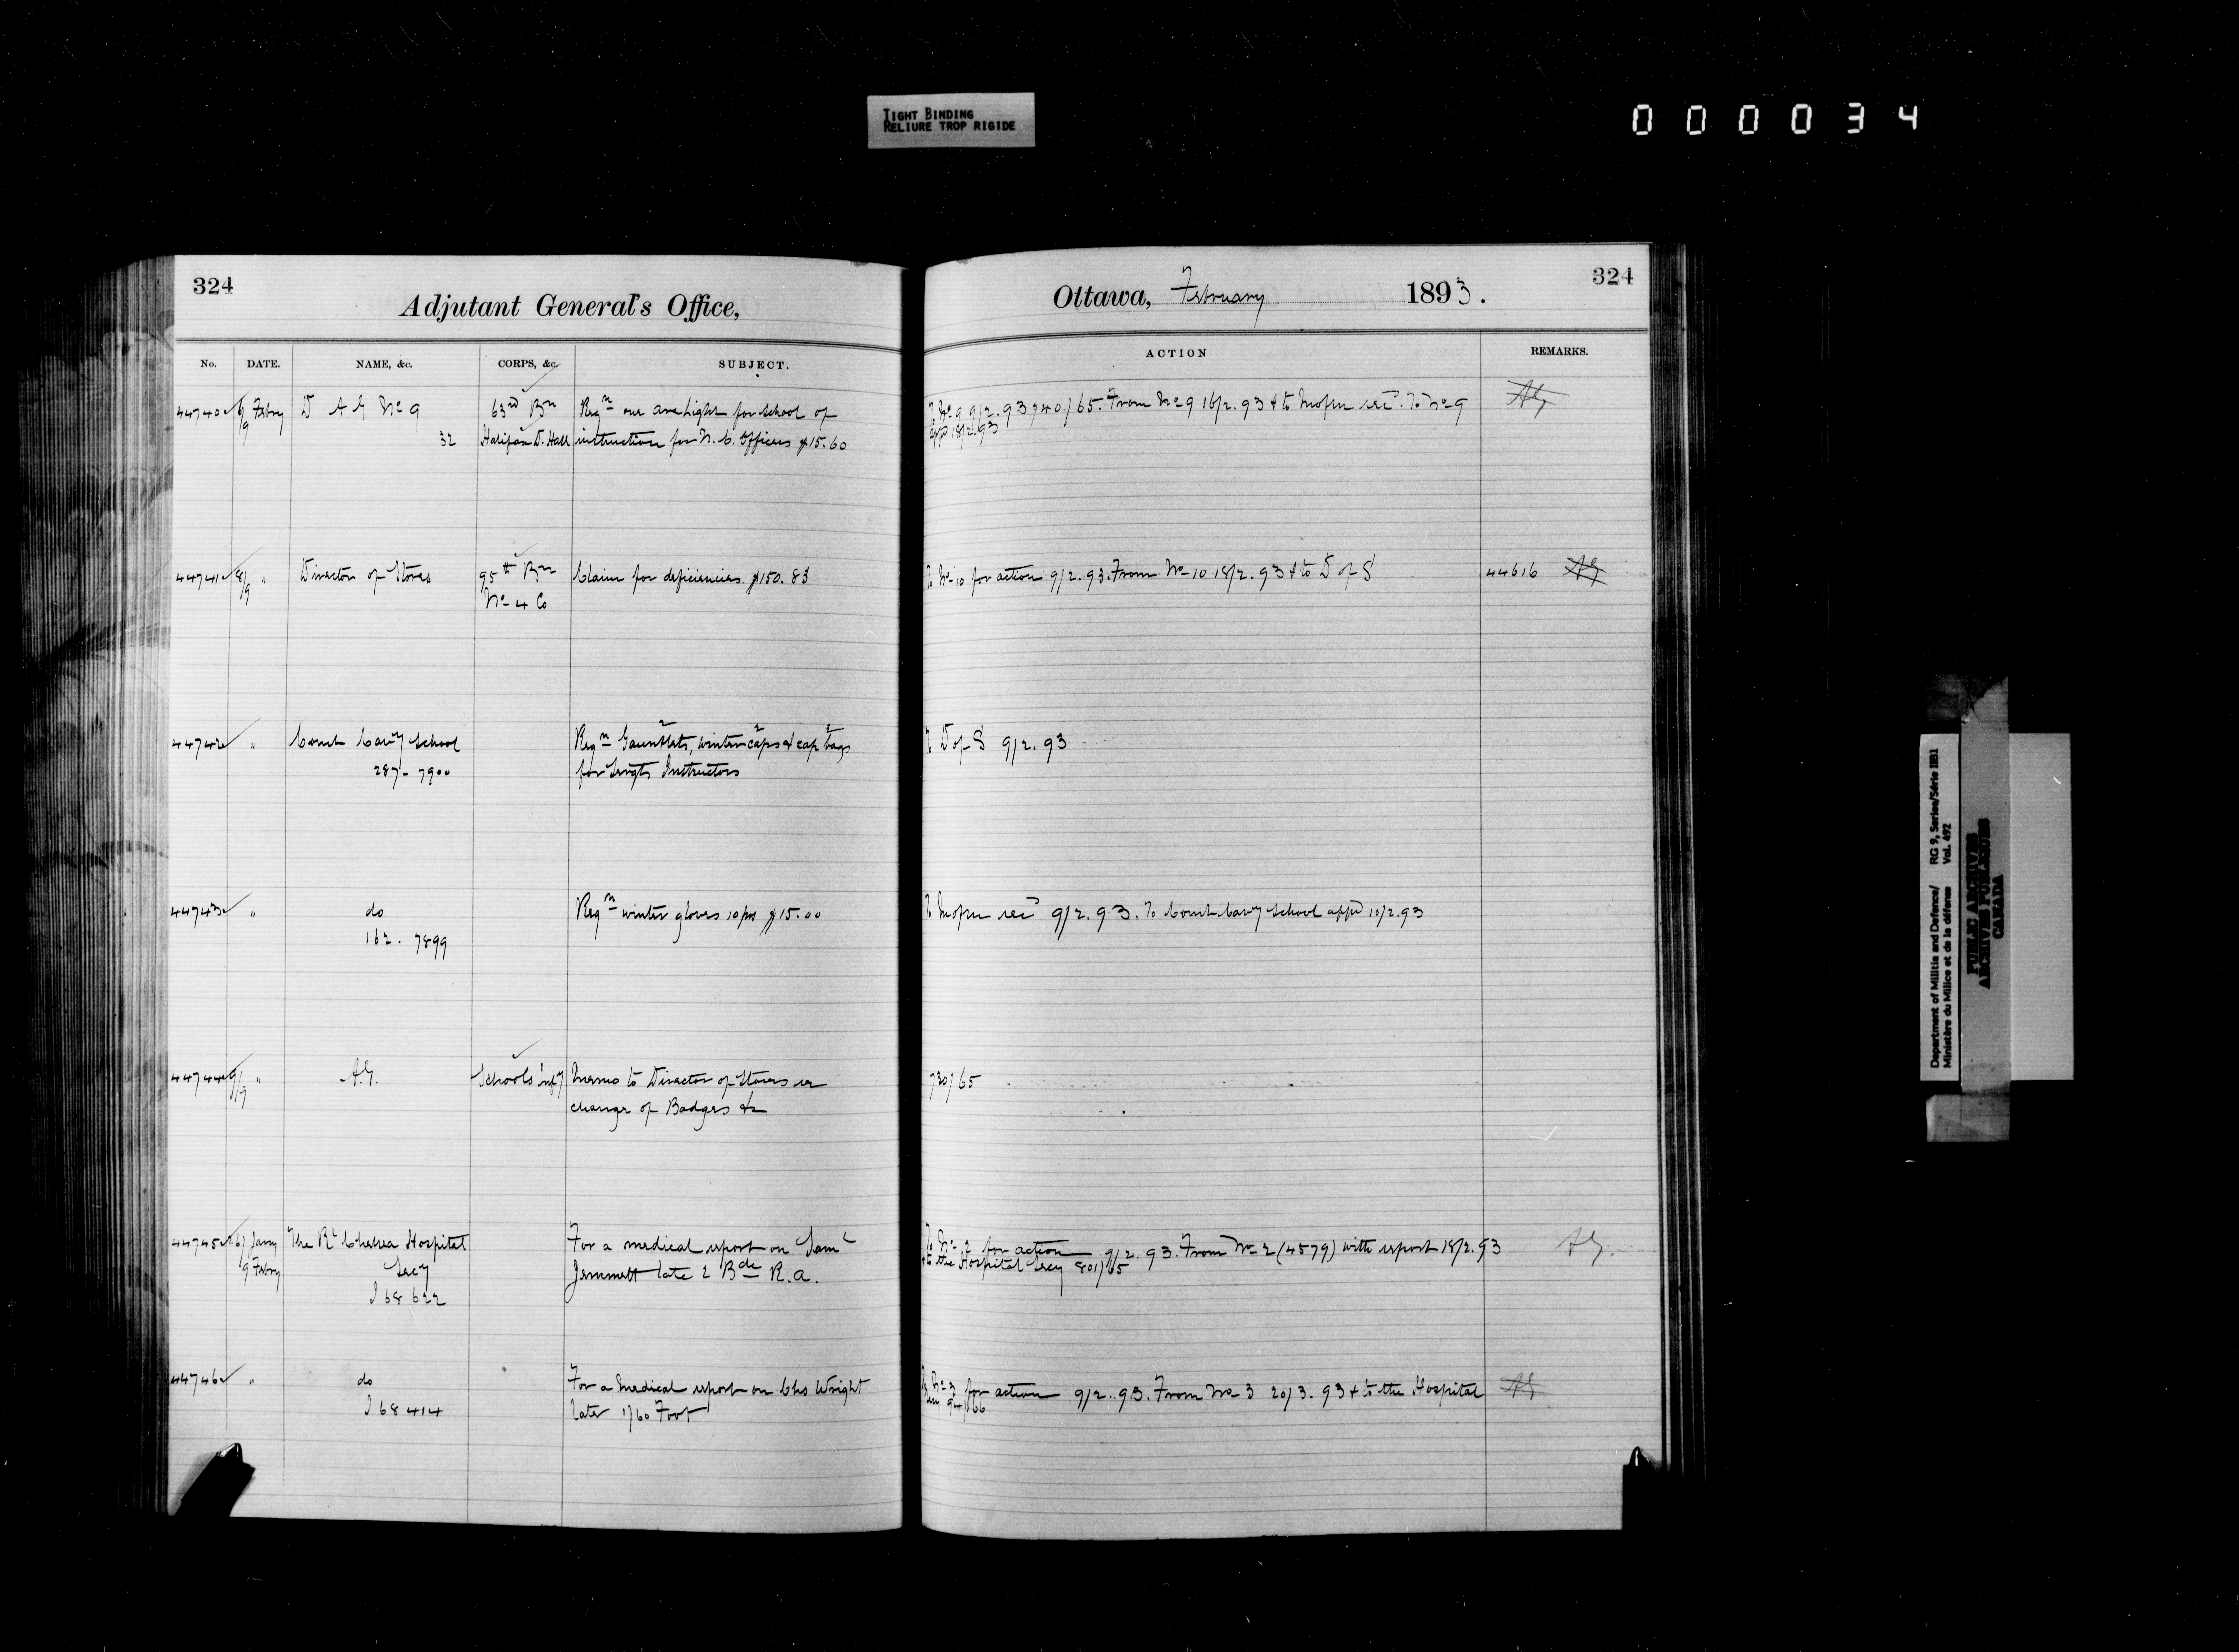 TIGHT BINDING
RELIURE TROP RIGIDE
000034
324
Adjutant General's Office,
Ottawa, February 1893.
324
No. DATE. NAME, &c. CORPS, &c. SUBJECT. ACTION REMARKS.
44740 6/9 Febry D A G No 9 63rd Bn Reqn one arc light for School of
32 Halifax D. Hall instruction for N. C. Officers $15.60
To No 9 9/2.93 740/65. From No 9 16/2.93 & to To No 9 AG
appd 18/2.93
44741 8/9 " Director of Stores 95th Bn Claim for deficiencies $150.83
No 4 Co
To No 10 for action 9/2.93. From No 10 18/2.93 & to D of S 44616 AG
44742 " Comdt Cavy School Reqn Gauntlets, winter caps & cap bags
287 - 7900 for Sergts Instructors
To D of S 9/2.93
44743 " do Reqn winter gloves 10 prs $15.00
162. 7899
To 9/2.93. To Comdt Cavy School appd 10/2.93
44744 9/9 " A.G. Schools Infy Memo to Director of Stores re
change of Badges &c
730/65
44745 26/ Jany The Rl Chelsea Hospital For a medical report on Saml
9 Febry Secy Jemmett late 2 Bde R.A.
I 68622
To No 2 for action 9/2.93. From No 2 (4579) with report 18/2.93 AG.
& to the Hospital Secy 801/65
44746 " do For a Medical report on Chs Wright
I 68414 late 1/60 Foot
To No 3 for action 9/2.93. From No 3 20/3.93 & to the Hospital AG
Secy 94/66
Department of Militia and Defence/ RG 9, Series/Série IIB1
Ministère du Milice et de la défense Vol. 492
PUBLIC ARCHIVES
ARCHIVES PUBLIQUES
CANADA